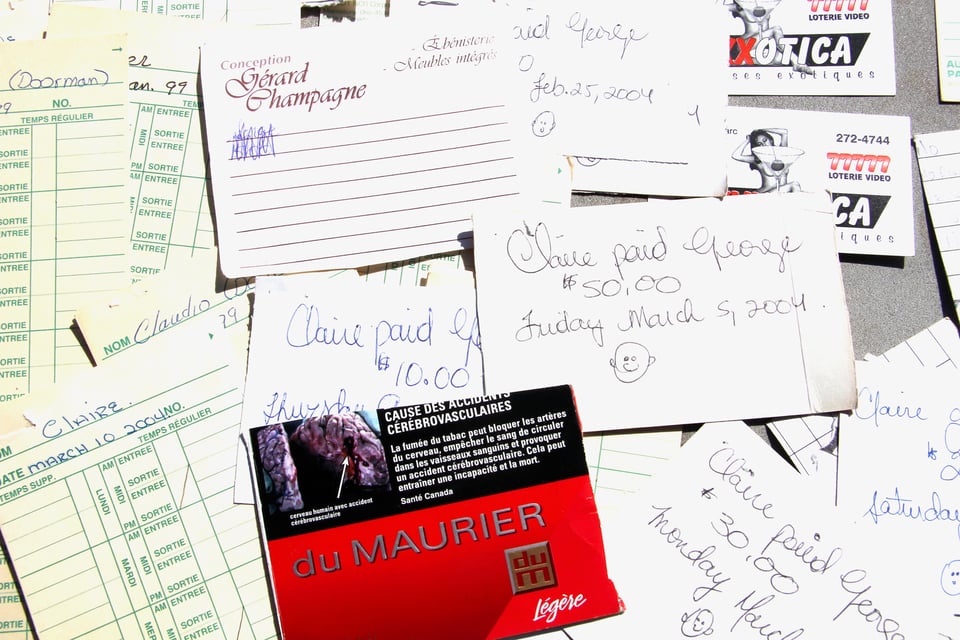 (Doorman)
NO.
TEMPS RÉGULIER
AM ENTREE
SORTIE
ENTREE
SORTIE
an. 99
AM ENTREE
MIDI SORTIE
ENTREE
PM SORTIE
AM ENTREE
MIDI SORTIE
ENTREE
Conception
Gérard
Champagne
- Ébénisterie
- Meubles intégrés
George
Feb. 25, 2004
LOTERIE VIDEO
XOTICA
ses exotiques
272-4744
LOTERIE VIDEO
CA
iques
Claire paid George
$50.00
Friday March 5, 2004.
Claudio
NOM
99
Claire paid Ge
$10.00
Claire
NO.
DATE MARCH 10 2004
TEMPS SUPP.
TEMPS RÉGULIER
LUNDI
AM ENTREE
MIDI SORTIE
ENTREE
PM SORTIE
MARDI
AM ENTREE
MIDI SORTIE
ENTREE
PM SORTIE
AM ENTREE
SORTIE
ENTREE
CAUSE DES ACCIDENTS
CÉRÉBROVASCULAIRES
La fumée du tabac peut bloquer les artères
du cerveau, empêcher le sang de circuler
dans les vaisseaux sanguins et provoquer
un accident cérébrovasculaire. Cela peut
entraîner une incapacité et la mort.
Santé Canada
cerveau humain avec accident
cérébrovasculaire
du MAURIER
du
M
Légère
Claire
Saturday
Claire paid George
$30.00
Monday March